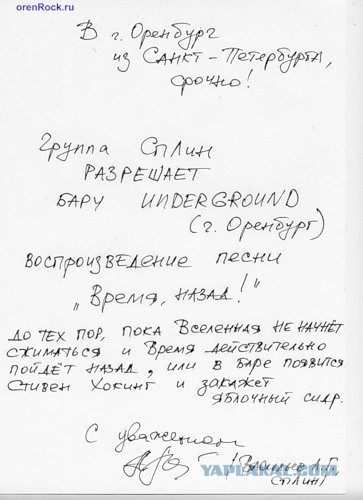 orenRock.ru
В г. Оренбург
из Санкт-Петербурга,
срочно!
Группа Сплин
РАЗРЕШАЕТ
БАРУ UNDERGROUND
(г. Оренбург)
ВОСПРОИЗВЕДЕНИЕ ПЕСНИ
„Время, НАЗАД!"
ДО ТЕХ ПОР, ПОКА Вселенная НЕ НАЧНЁТ
СЖИМАТЬСЯ и Время действительно
пойдёт НАЗАД, или в БАРЕ появится
Стивен Хокинг и закажет
яблочный сидр.
С уважением
СПЛИН)
YAPLAKAL.COM